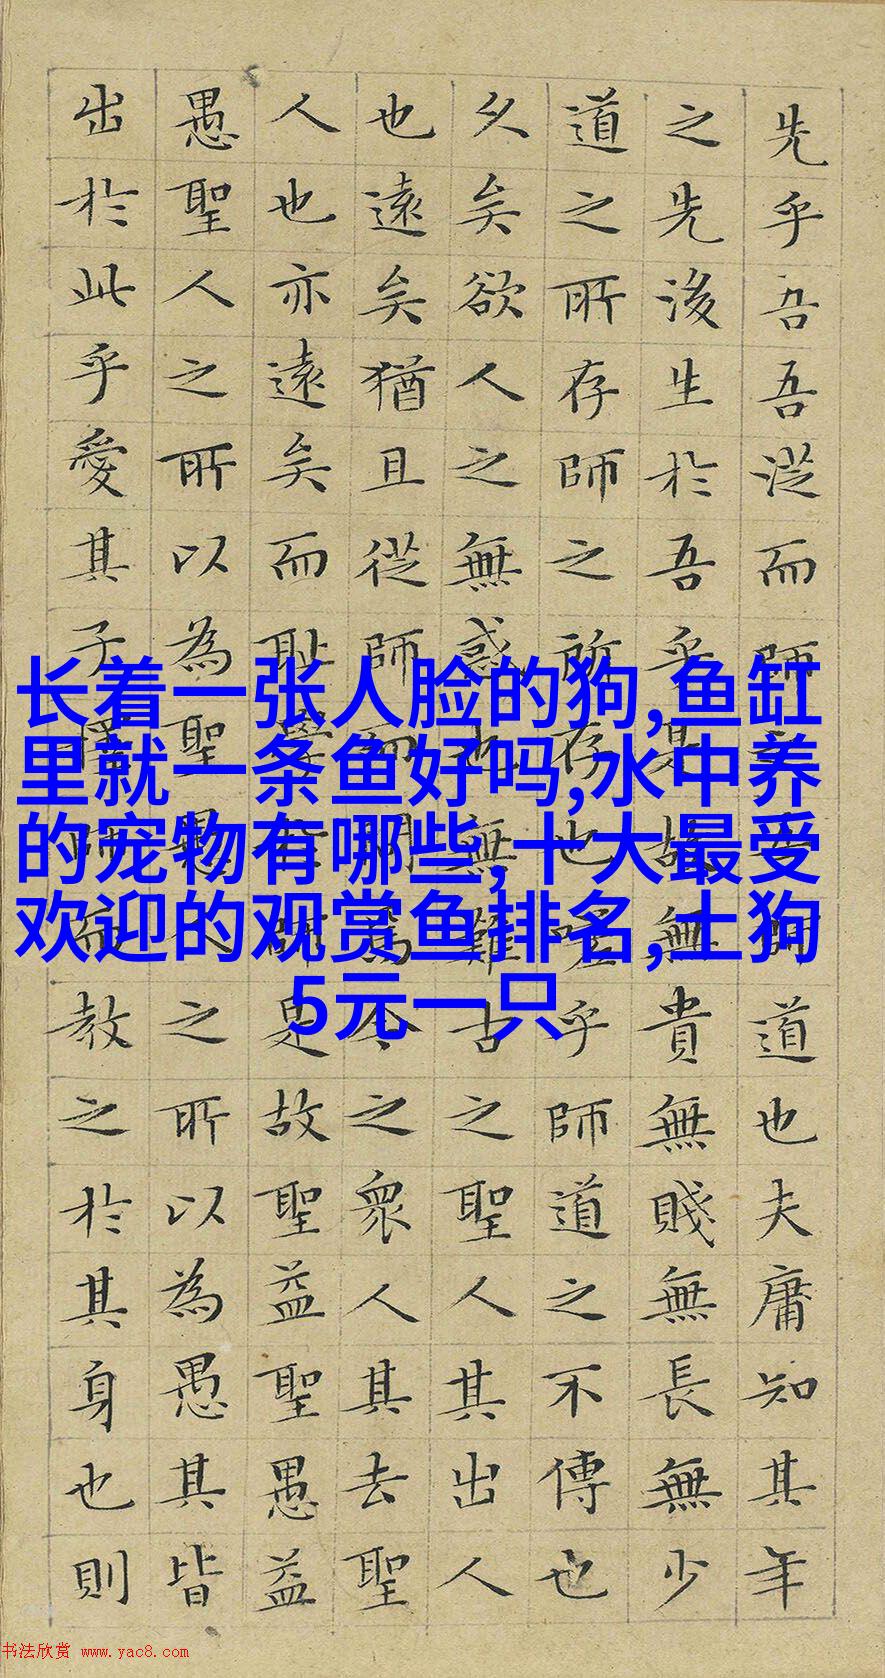 先乎吾吾從而師師道也夫庸知其年
之先後生於吾乎是故無貴無賤無長無少
道之所存師之所存也嗟乎師道之不傳也
久矣欲人之無惑也無難古之聖人其出人
也遠矣猶且從師而問焉今之眾人其去聖
人也亦遠矣而恥學於師是故聖益聖愚益
愚聖人之所以為聖愚人之所以為愚其皆
出於此乎愛其子擇師而教之於其身也則
长着一张人脸的狗,鱼缸
里就一条鱼好吗,水中养
的宠物有哪些,十大最受
欢迎的观赏鱼排名,土狗
5元一只
书法欣赏 www.yac8.com